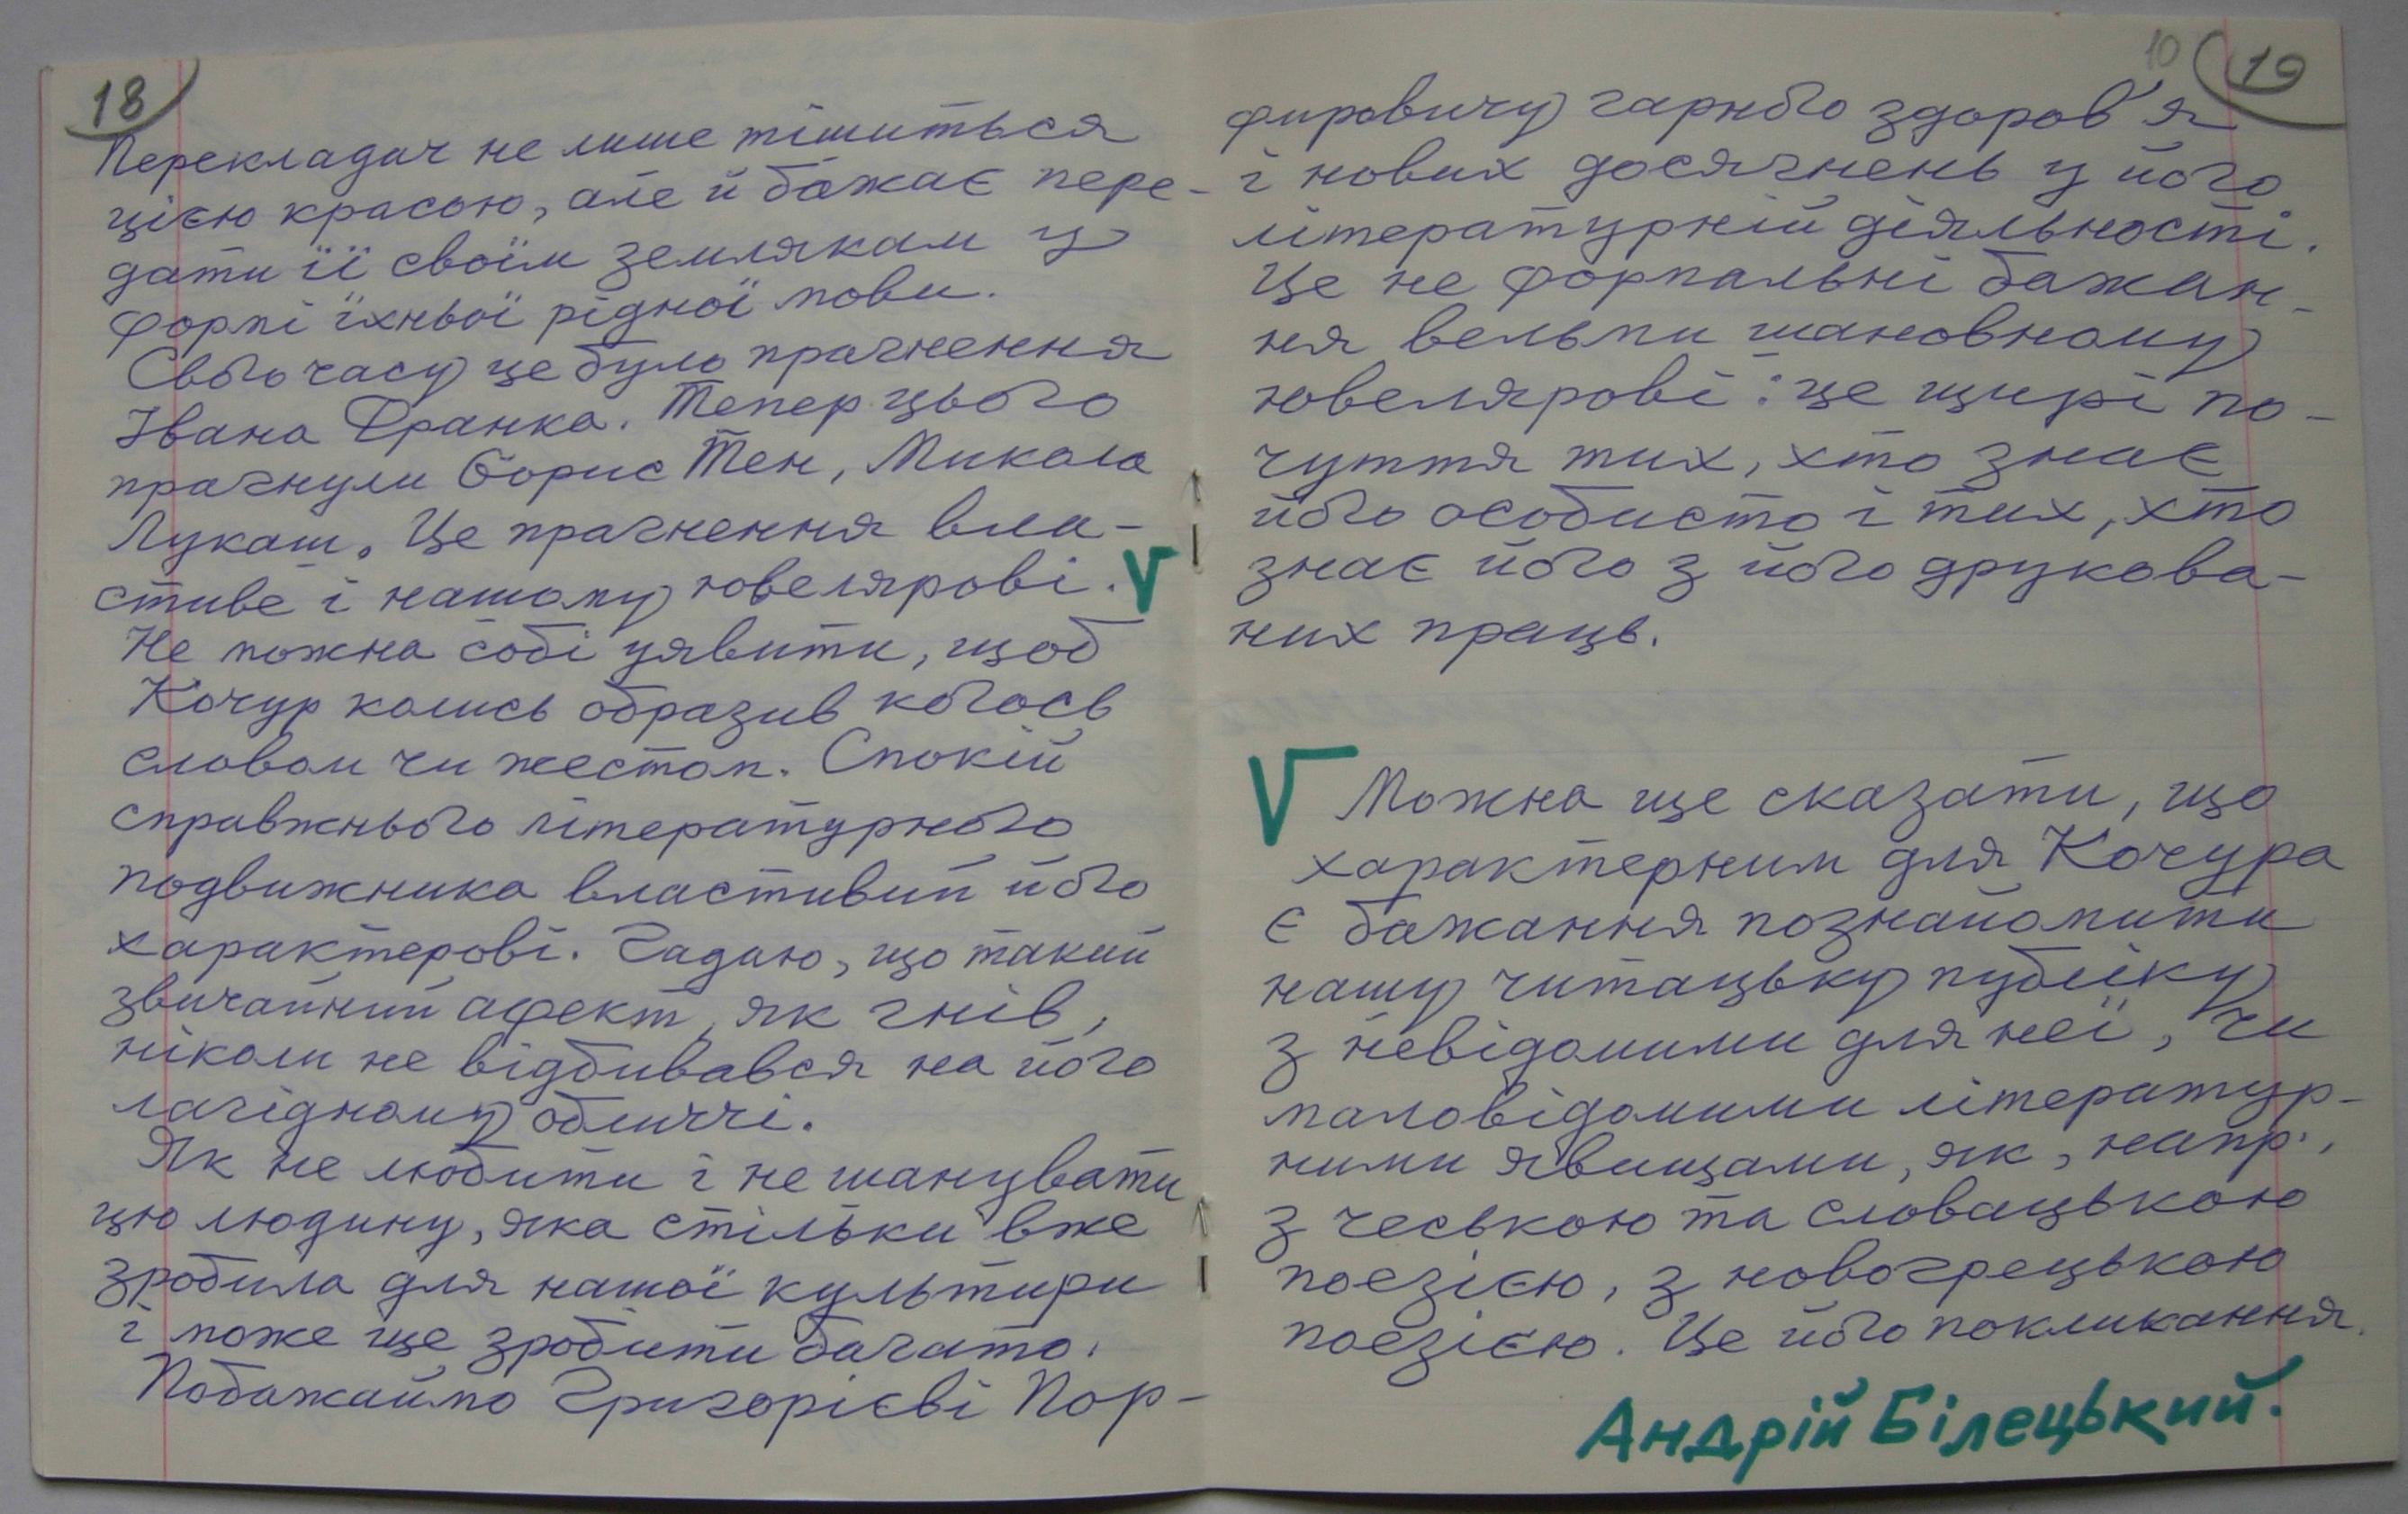 18
Перекладач не лише тішиться
цією красою, але й бажає пере-
дати її своїм землякам у
формі їхньої рідної мови.
Свого часу це було прагнення
Івана Франка. Тепер цього
прагнули Борис Тен, Микола
Лукаш. Це прагнення вла-
стиве і нашому ювелярові. V
Не можна собі уявити, щоб
Кочур колись образив когось
словом чи жестом. Спокій
справжнього літературного
подвижника властивий його
характерові. Гадаю, що такий
звичайний афект, як гнів,
ніколи не відбивався на його
лагідному обличчі.
Як не любити і не шанувати
цю людину, яка стільки вже
зробила для нашої культури
і може ще зробити багато.
Побажаймо Григорієві Пор-
10 19
фировичу гарного здоров'я
і нових досягнень у його
літературній діяльності.
Це не формальні бажан-
ня вельми шановному
ювелярові: це щирі по-
чуття тих, хто знає
його особисто і тих, хто
знає його з його друкова-
них праць.
V Можна ще сказати, що
характерним для Кочура
є бажання познайомити
нашу читацьку публіку
з невідомими для неї, чи
маловідомими літератур-
ними явищами, як, напр.,
з чеською та словацькою
поезією, з новогрецькою
поезією. Це його покликання.
Андрій Білецький.